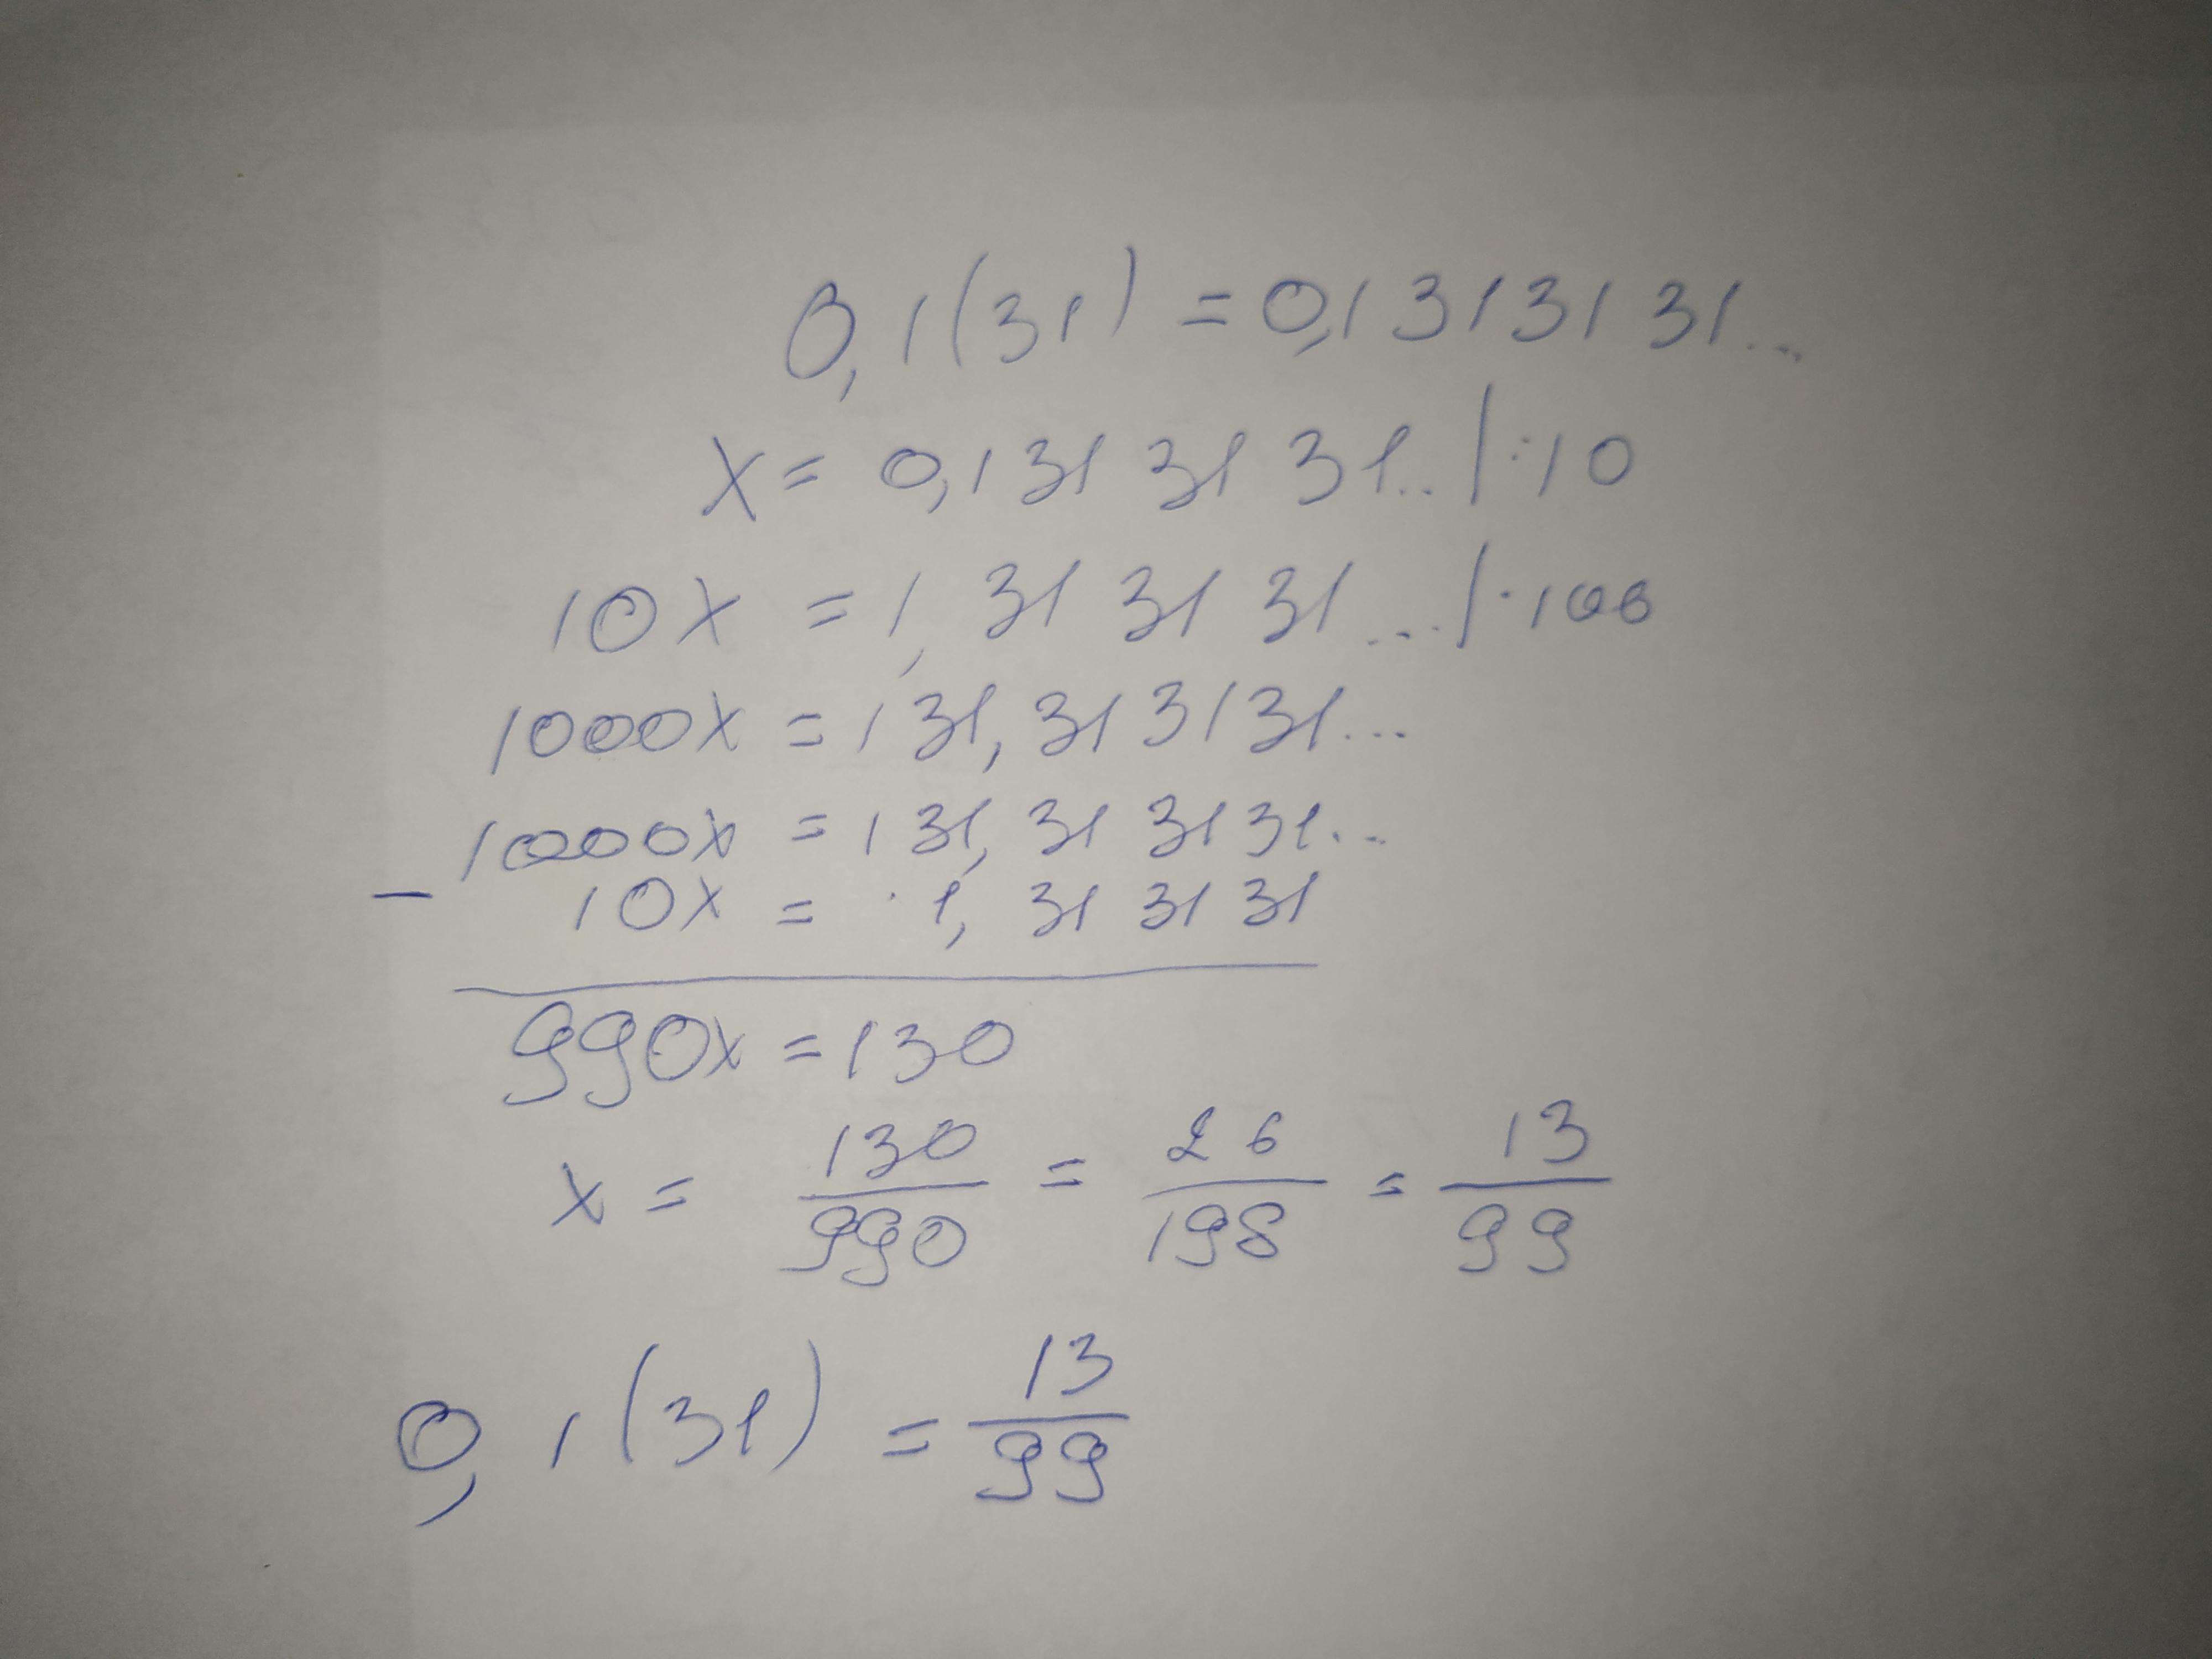 0,1(31) = 0,1313131...
x = 0,1313131.. | :10
10x = 1,313131... | ·100
1000x = 131,313131...
1000x = 131,313131...
− 10x = 1,313131
990x = 130
x = 130/990 = 26/198 = 13/99
0,1(31) = 13/99